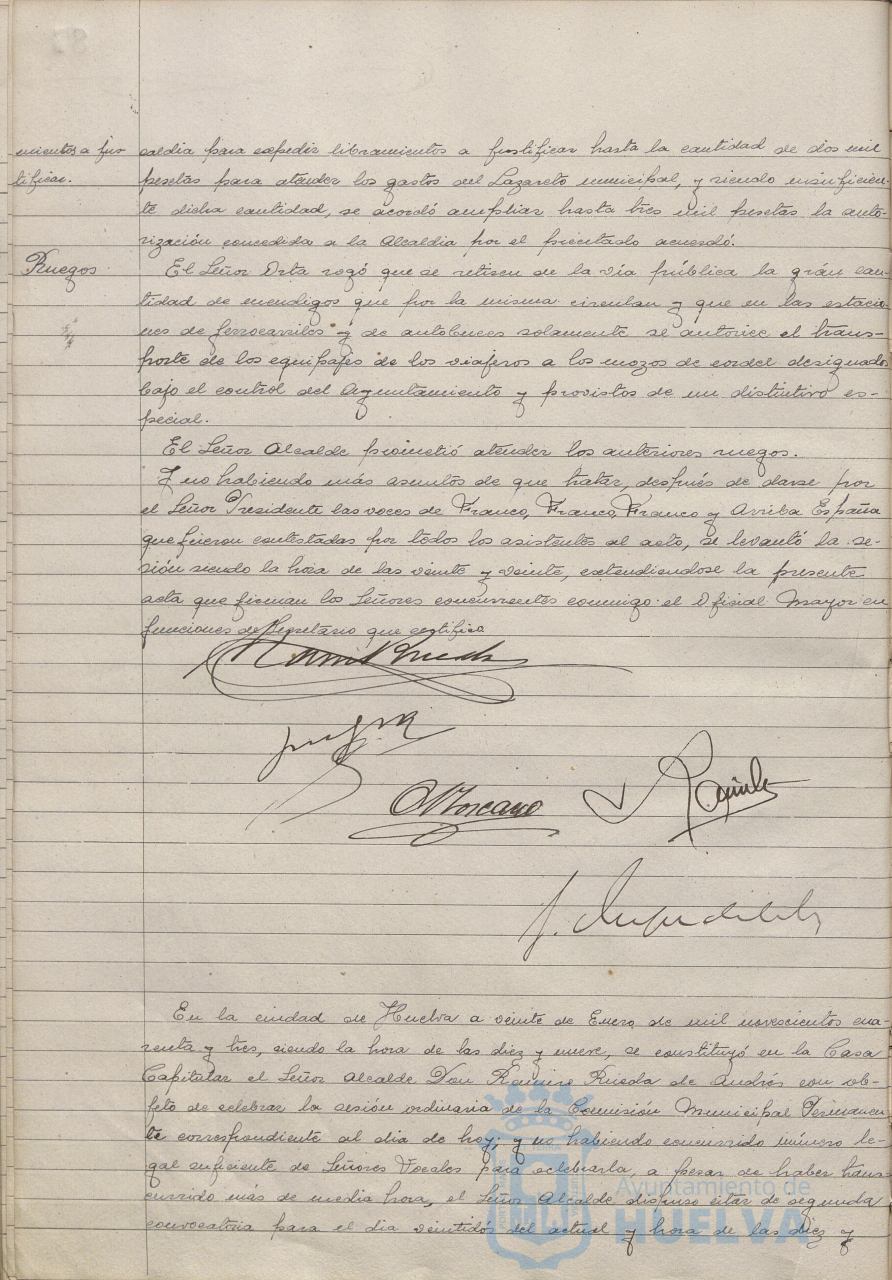 mientos a jus
tificar.
caldia para expedir libramientos a justificar hasta la cantidad de dos mil
pesetas para atender los gastos del Lazareto municipal, y siendo insuficien-
te dicha cantidad, se acordó ampliar hasta tres mil pesetas la auto-
rización concedida a la Alcaldia por el precitado acuerdo.
Ruegos
El Señor Orta rogó que se retiren de la vía pública la grán can-
tidad de mendigos que por la misma circulan y que en las estacio-
nes de ferrocarriles y de autobuces solamente se autorice el trans-
porte de los equipajes de los viajeros a los mozos de cordel designados
bajo el control del Ayuntamiento y provistos de un distintivo es-
pecial.
El Señor Alcalde prometió atender los anteriores ruegos.
Y no habiendo más asuntos de que tratar, después de darse por
el Señor Presidente las voces de Franco, Franco, Franco y Arriba España
que fueron contestadas por todos los asistentes al acto, se levantó la se-
sión siendo la hora de las veinte y veinte, extendiendose la presente
acta que firman los Señores concurrentes conmigo el Oficial Mayor en
funciones de Secretario que certifico
En la ciudad de Huelva a veinte de Enero de mil novescientos cua-
renta y tres, siendo la hora de las diez y nueve, se constituyó en la Casa
Capitular el Señor Alcalde Don Ramiro Rueda de Andrés con ob-
jeto de celebrar la sesión ordinaria de la Comisión Municipal Permanen-
te correspondiente al dia de hoy; y no habiendo concurrido número le-
gal suficiente de Señores Vocales para celebrarla, a pesar de haber trans-
currido más de media hora, el Señor Alcalde dispuso citar de segunda
convocatoria para el dia veintidós del actual y hora de las diez y
Ayuntamiento de
HUELVA